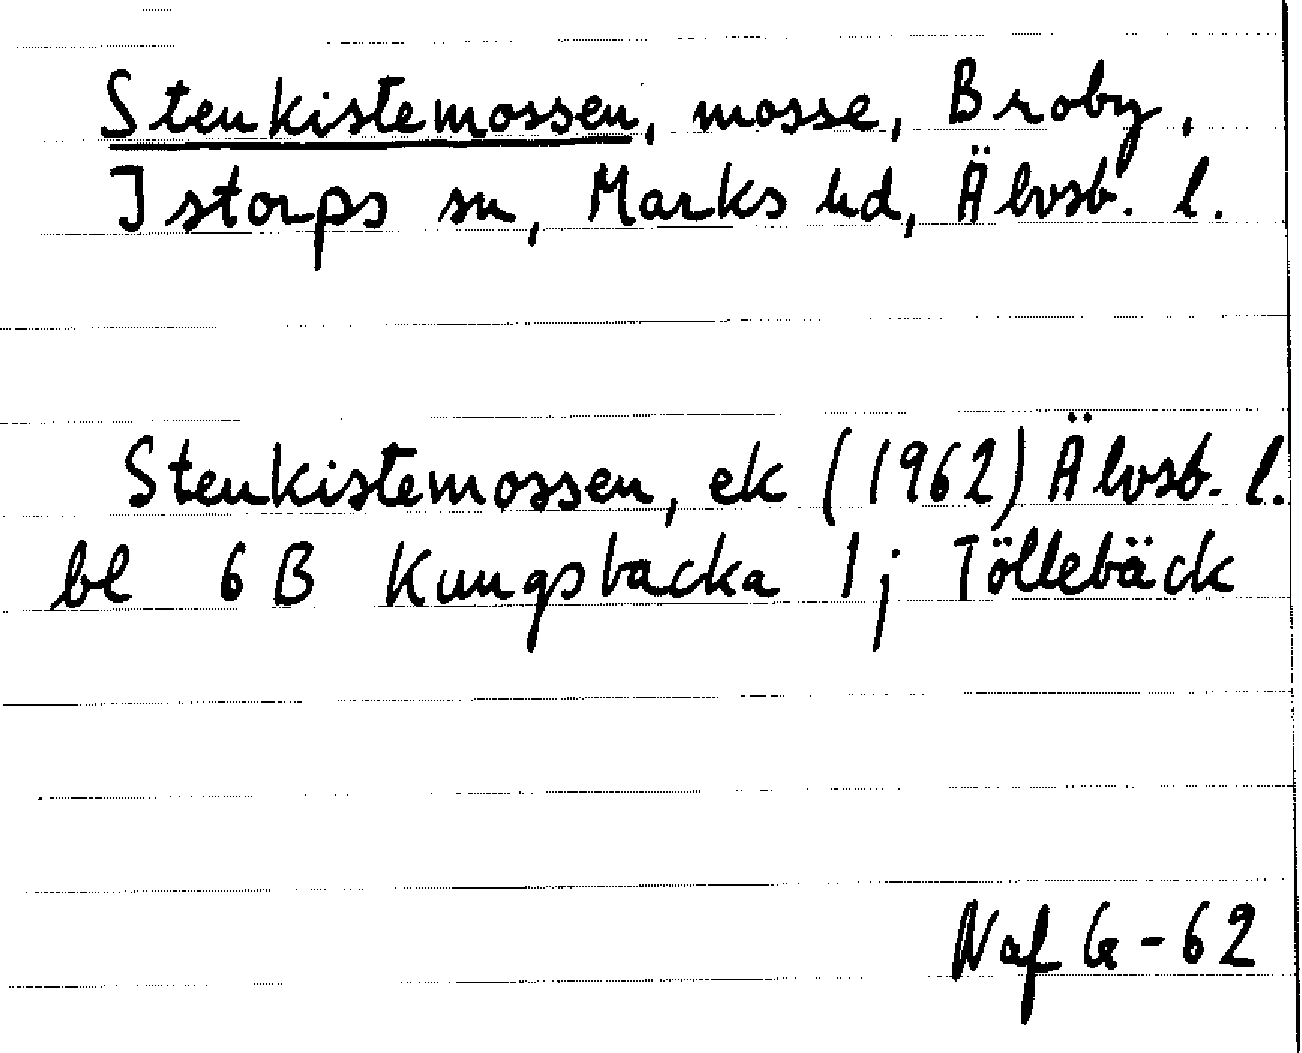 Stenkistemossen, mosse, Broby,
Istorps sn, Marks hd, Älvsb. l.
Stenkistemossen, ek (1962) Älvsb. l.
bl 6 B Kungsbacka 1j Töllebäck
Naf G-62